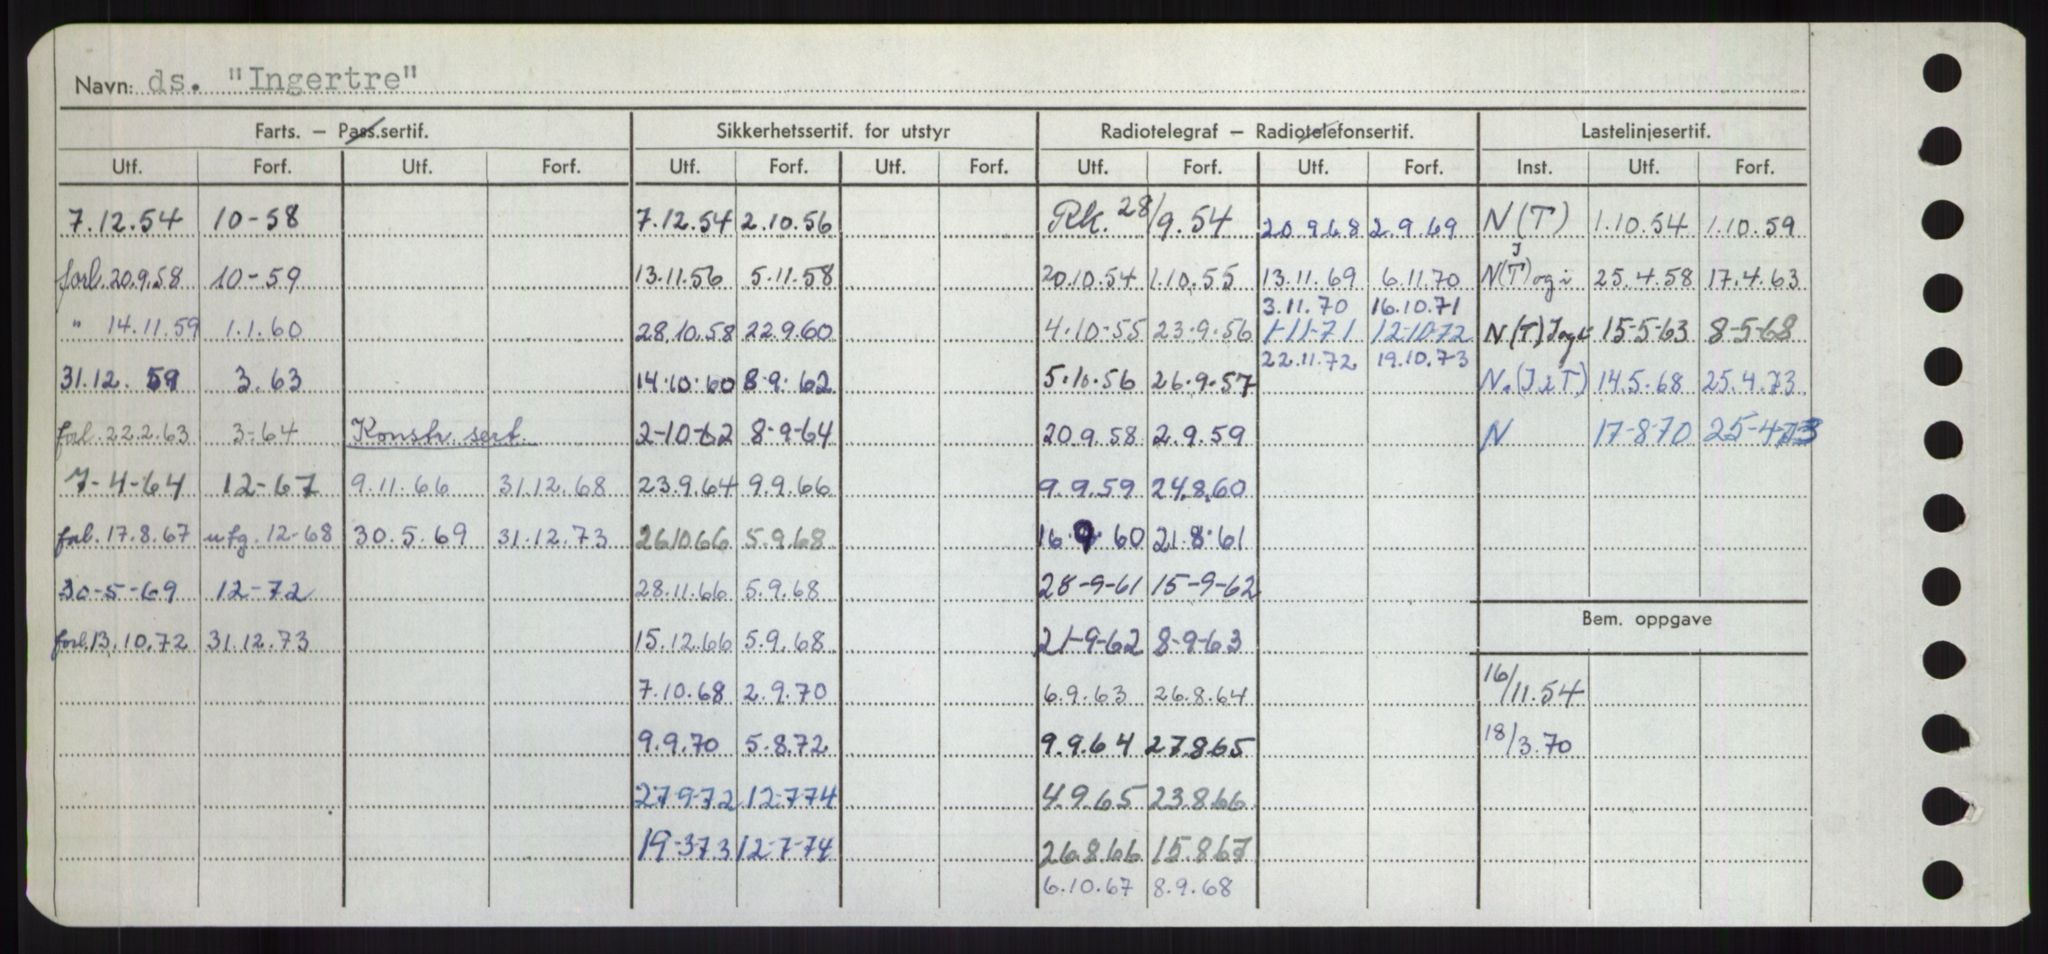 Navn: ds. "Ingertre"
Farts. – Pass.sertif. Sikkerhetssertif. for utstyr Radiotelegraf – Radiotelefonsertif. Lastelinjesertif.
Utf. Forf. Utf. Forf. Utf. Forf. Utf. Forf. Utf. Forf. Utf. Forf. Inst. Utf. Forf.
7.12.54 10-58 7.12.54 2.10.56 Rk. 28/9.54 20.9.68 2.9.69 N(T) 1.10.54 1.10.59
forl. 20.9.58 10-59 13.11.56 5.11.58 20.10.54 1.10.55 13.11.69 6.11.70 N(T) og i 25.4.58 17.4.63
3.11.70 16.10.71
" 14.11.59 1.1.60 28.10.58 22.9.60 4-10-55 23-9-56 1-11-71 12-10-72 N(T) I og i 15-5-63 8-5-68
22.11.72 19.10.73
31.12.59 3.63 14.10.60 8.9.62 5.10.56 26.9.57 N.(I i T) 14.5.68 25.4.73
forl. 22.2.63 3-64 Konstr. sert. 2-10-62 8-9-64 20.9.58 2.9.59 N 17-8-70 25-4-73
7-4-64 12-67 9.11.66 31.12.68 23.9.64 9.9.66 9.9.59 24.8.60
forl. 17.8.67 utg. 12-68 30.5.69 31.12.73 26.10.66 5.9.68 16.9.60 21.8.61
30-5-69 12-72 28.11.66 5.9.68 28-9-61 15-9-62
Bem. oppgave
forl. 13.10.72 31.12.73 15.12.66 5.9.68 21-9-62 8-9-63
7.10.68 2.9.70 6.9.63 26.8.64 16/11.54
9.9.70 5.8.72 9.9.64 27.8.65 18/3.70
27-9-72 12-7-74 4.9.65 23.8.66
19-3-73 12-7-74 26.8.66 15.8.67
6.10.67 8.9.68